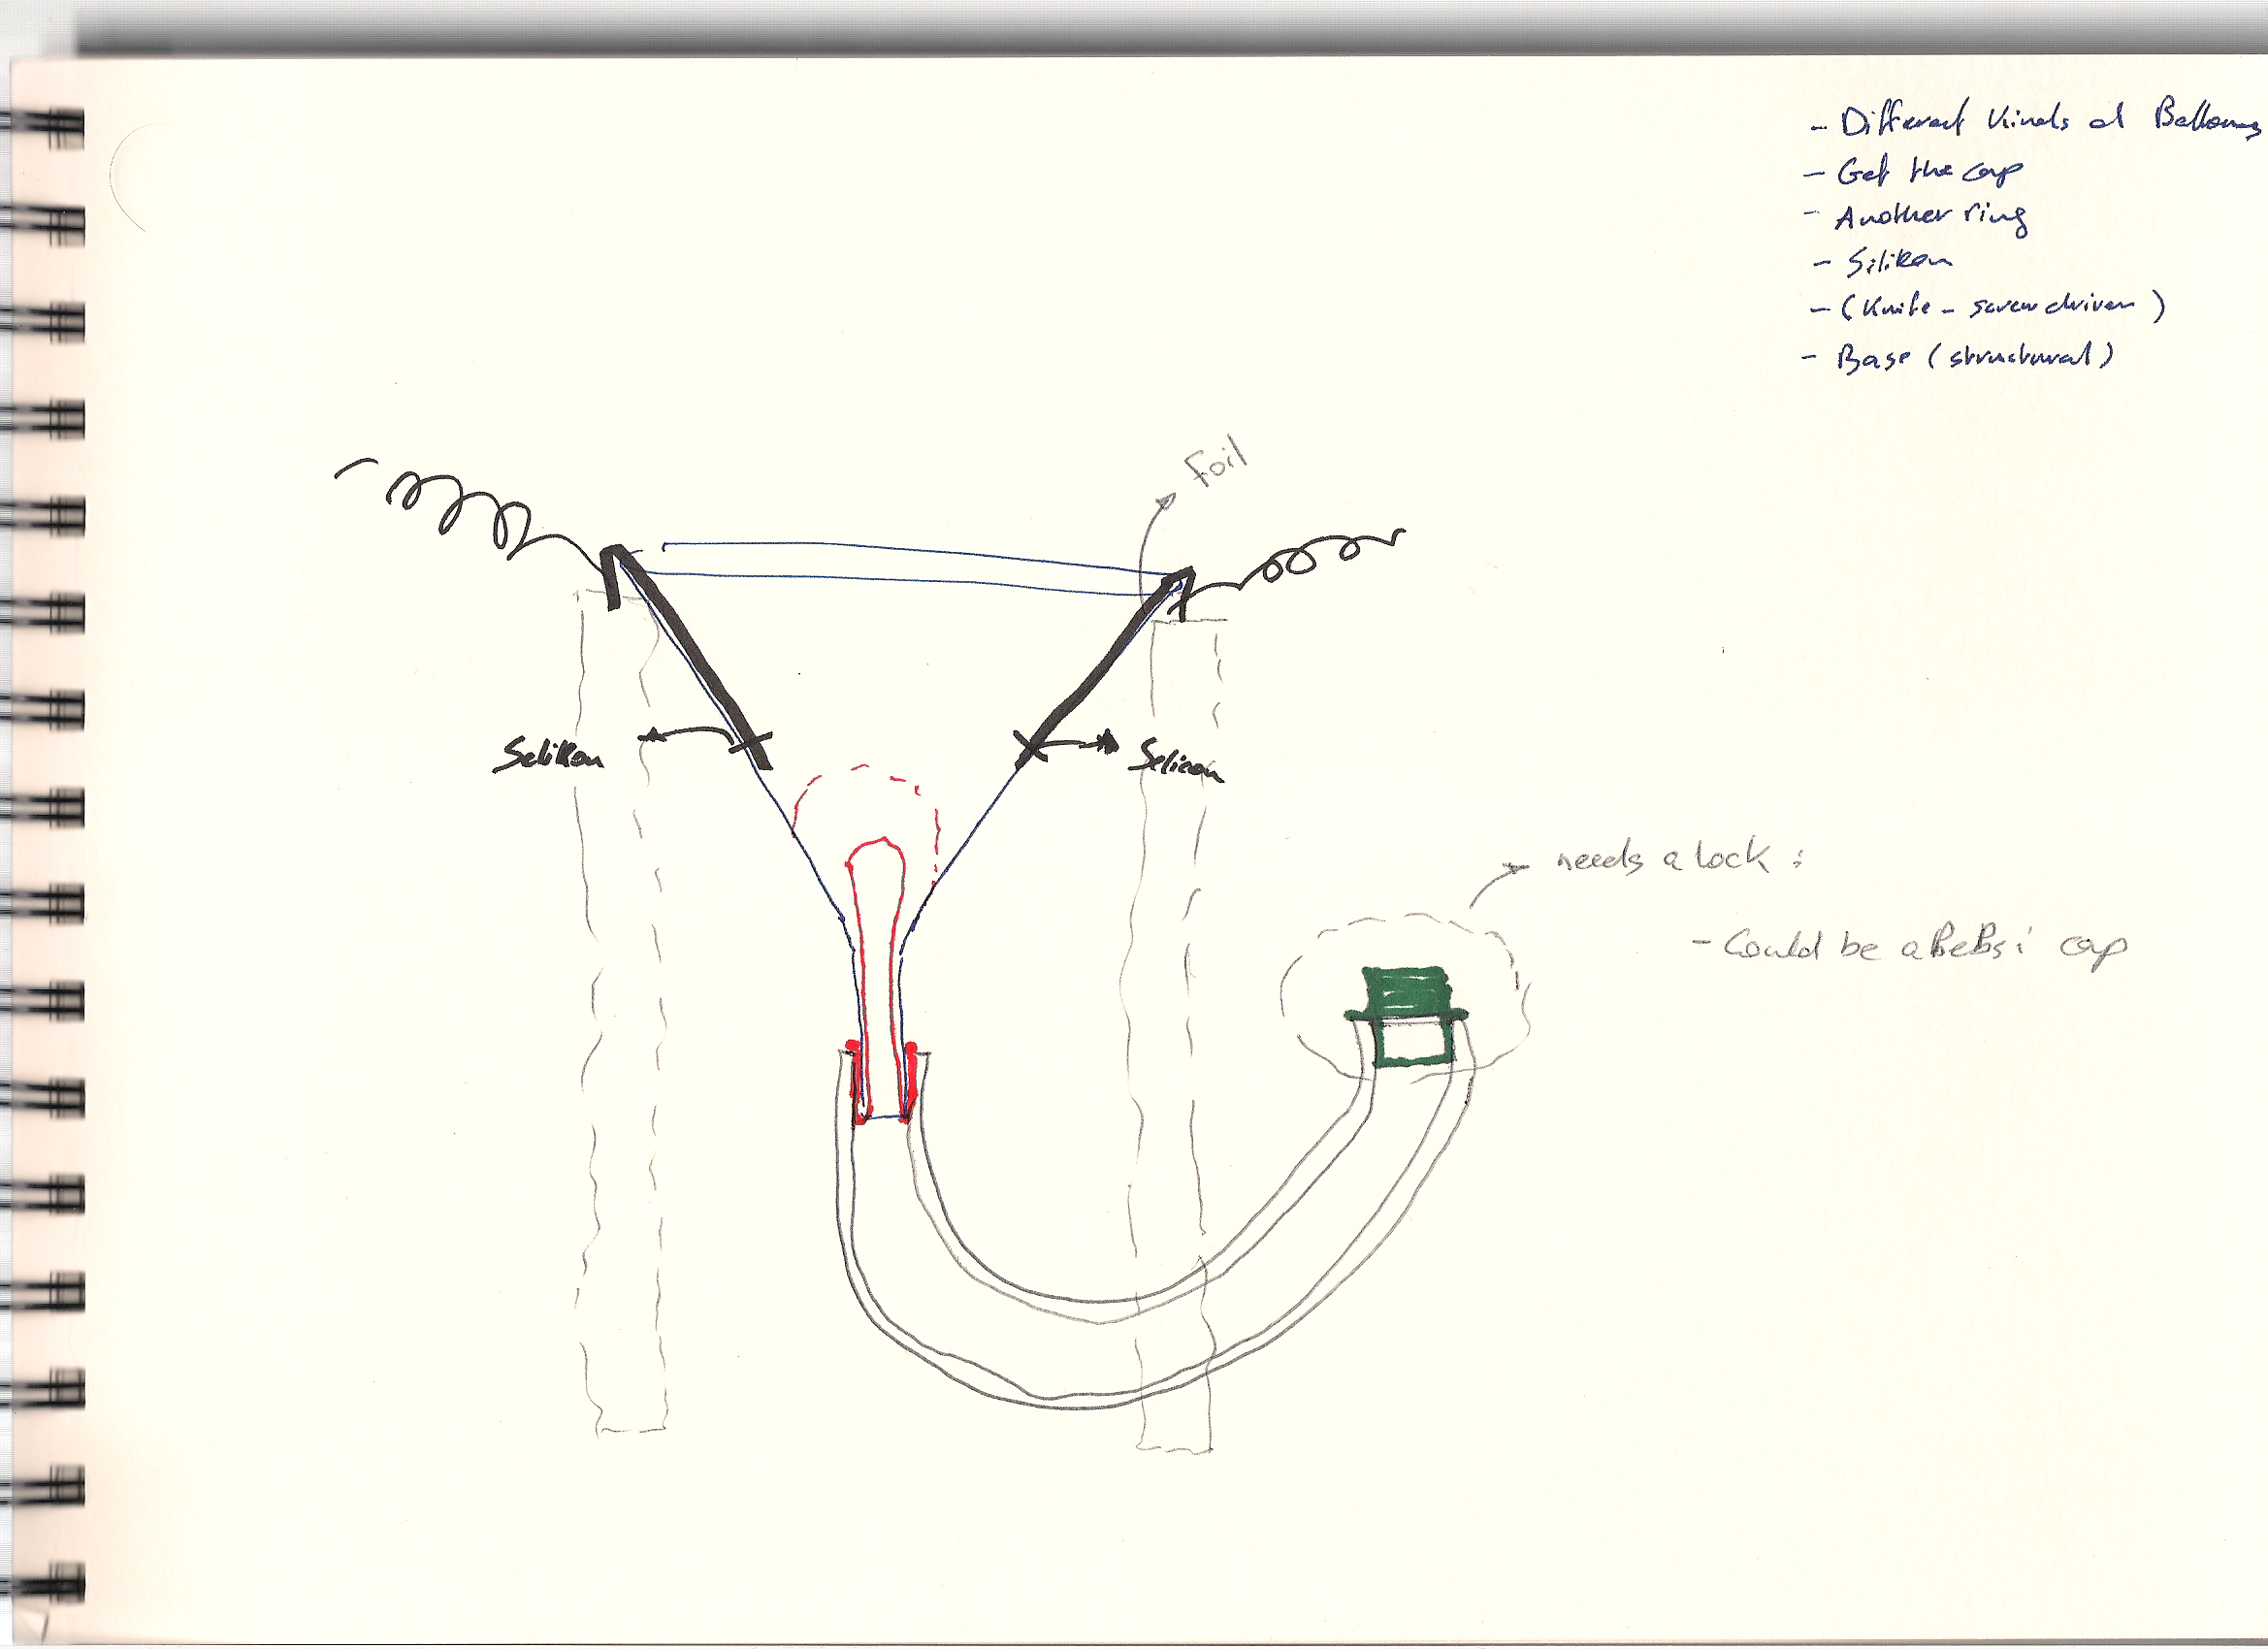 - Different kinds of Balloons
- Get the cap
- Another ring
- Silikon
- (Knife - screw driver)
- Base (structural)
Foil
Selikon
Selicon
needs a lock :
- Could be a BeBsi cap